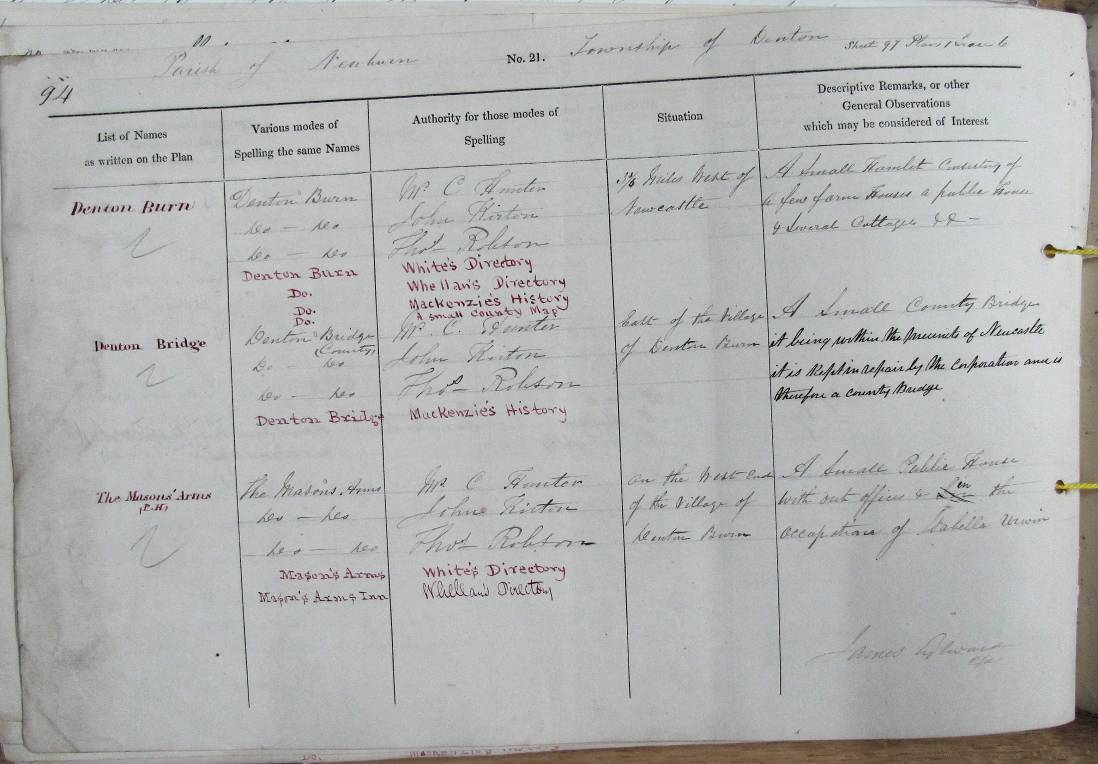 Parish of Newburn No. 21. Township of Denton Sheet 97 Plan 1 Trace 6
94
List of Names
as written on the Plan
Various modes of
Spelling the same Names
Authority for those modes of
Spelling
Situation
Descriptive Remarks, or other
General Observations
which may be considered of Interest
Denton Burn
Denton Burn
Do — Do
Do — Do
Denton Burn
Do.
Do.
Do.
Mr. C Hunter
John Kirton
Thos. Robson
White's Directory
Whellan's Directory
Mackenzie's History
A small County Map
Miles West of
Newcastle
A Small Hamlet Consisting of
a few farm Houses a public House
& Several Cottages &c —
Denton Bridge
Denton Bridge
(County)
Do Do
Do — Do
Denton Bridge
Mr. C. Hunter
John Kirton
Thos. Robson
Mackenzie's History
East of the Village
of Denton Burn
A Small County Bridge
it being within the precincts of Newcastle
it is kept in repair by the Corporation and is
therefore a county Bridge
The Masons' Arms
(P.H)
The Masons Arms
Do — Do
Do — Do
Mason's Arms
Mason's Arms Inn
Mr. C Hunter
John Kirton
Thos. Robson
White's Directory
Whellan's Directory
On the West End
of the Village of
Denton Burn
A Small Public House
with out offices & in the
Occupation of Isabella Urwin
James